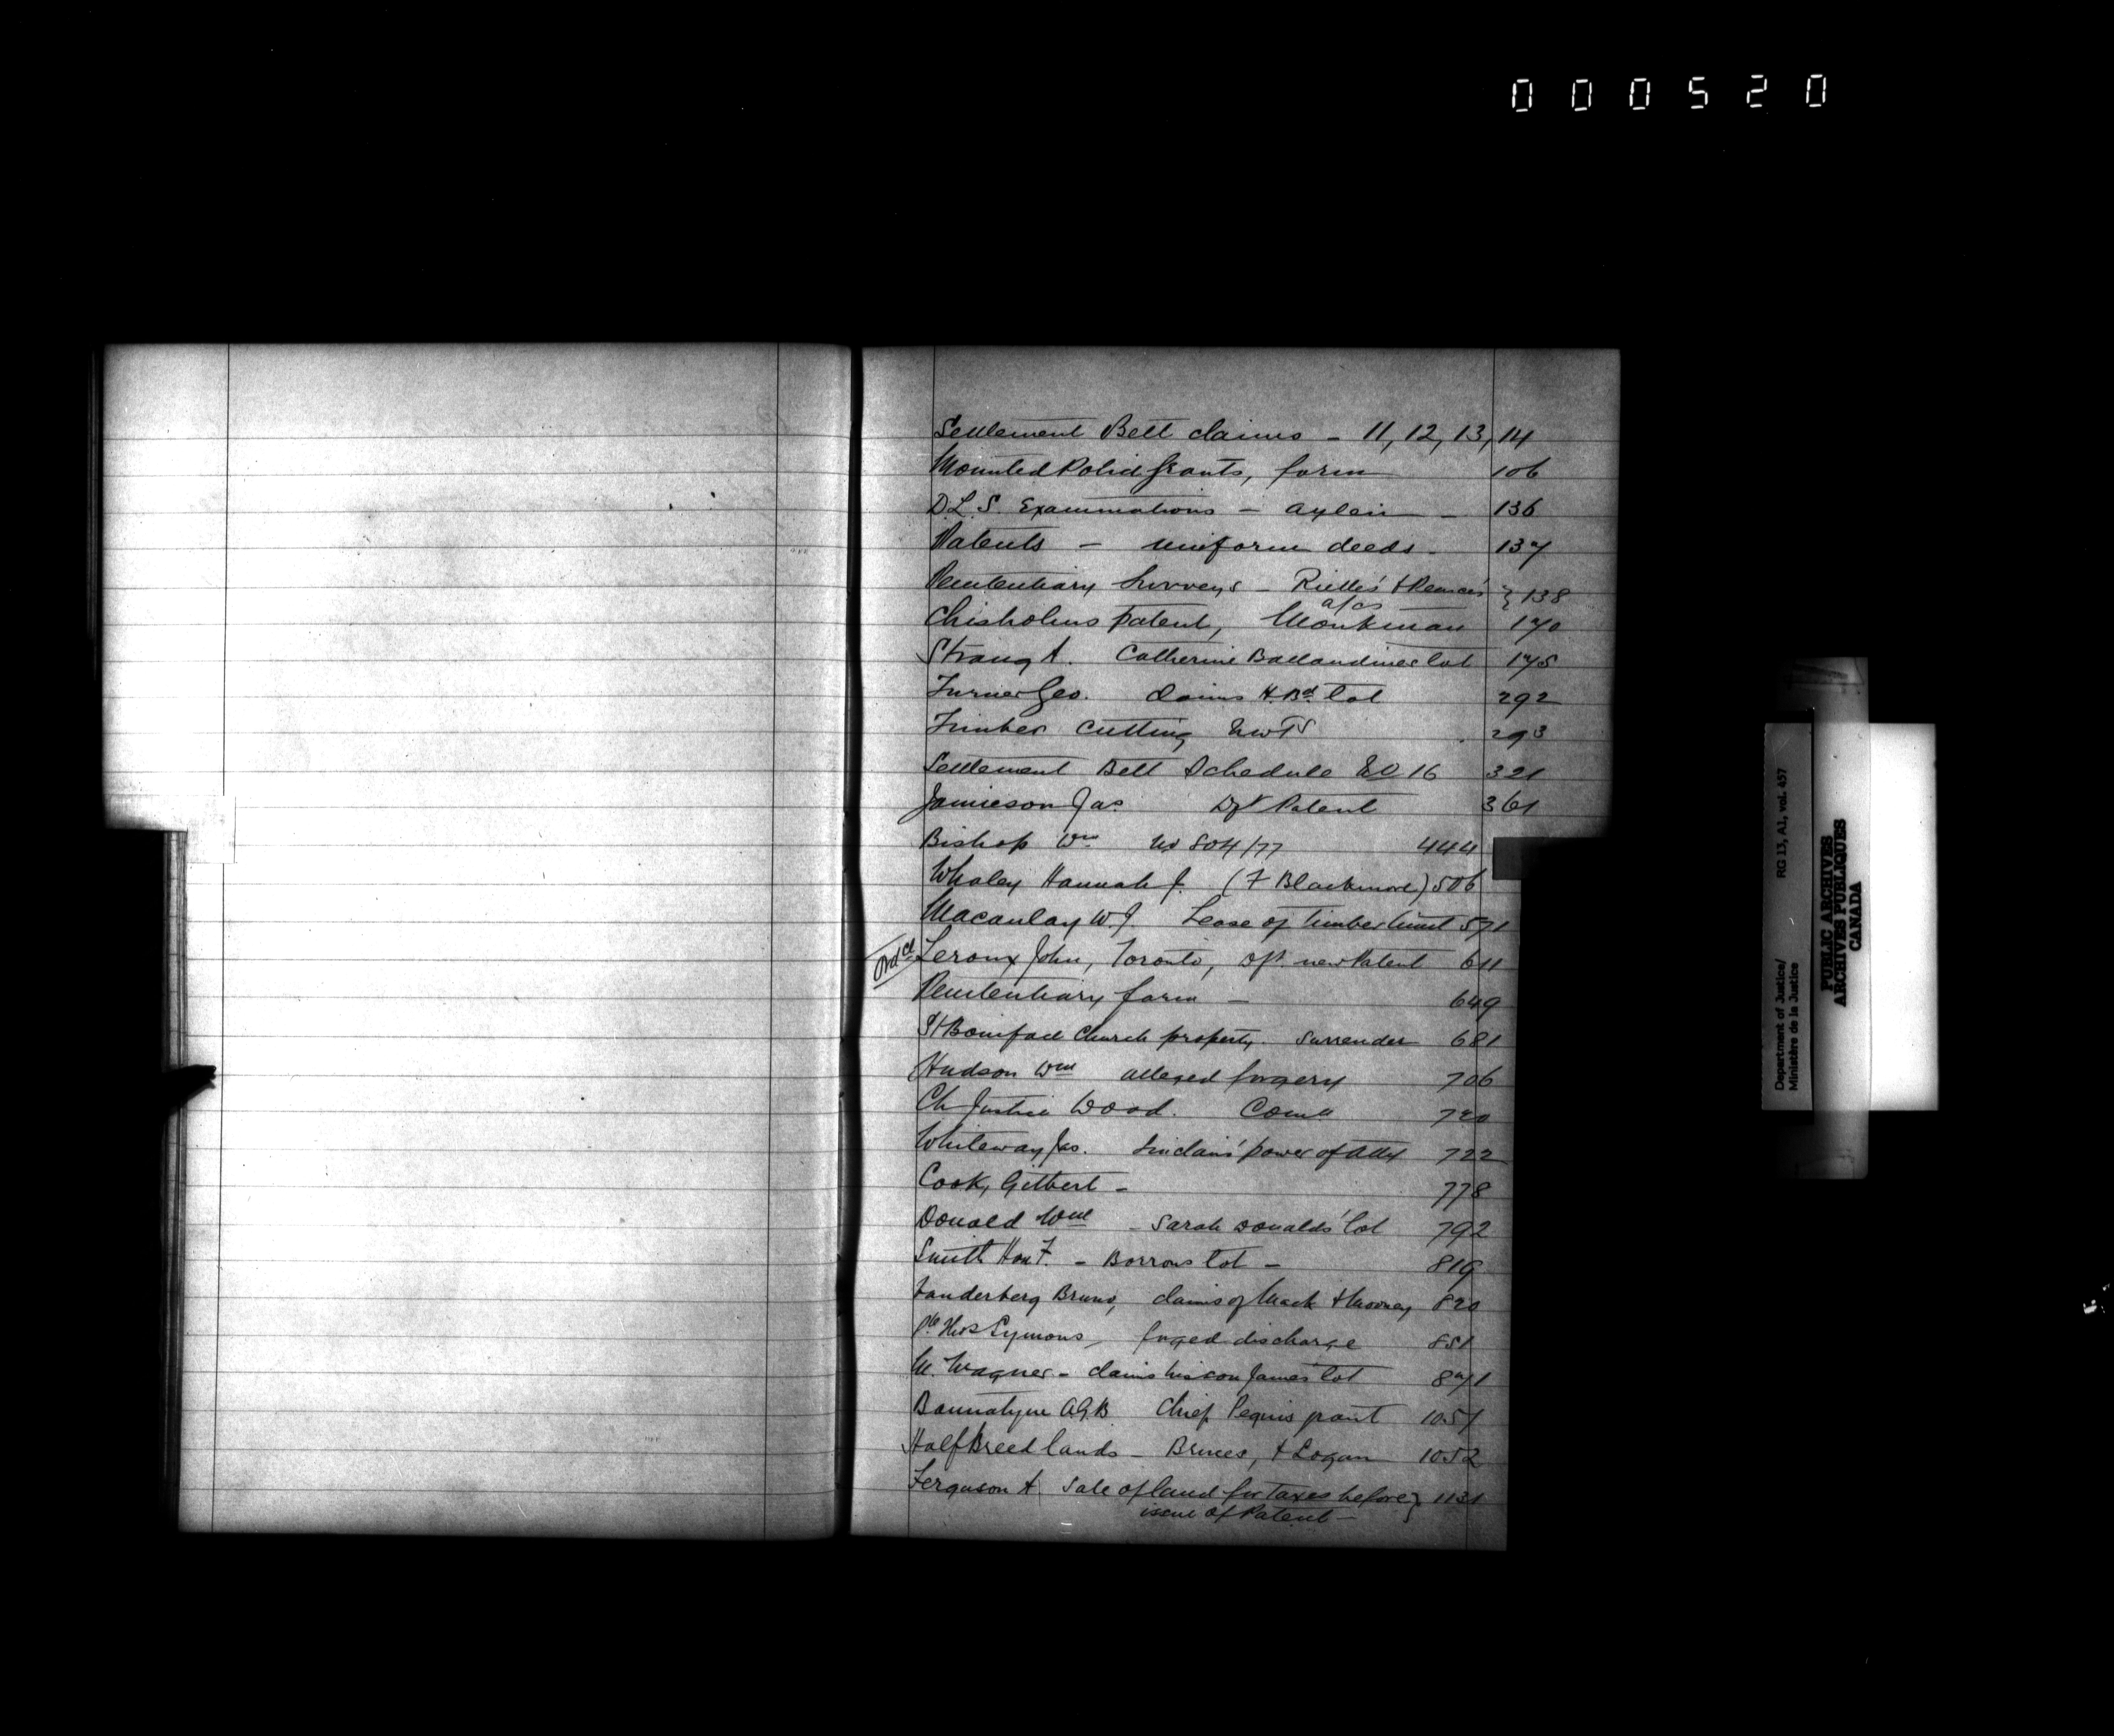 000520
Settlement Belt claims - 11, 12, 13, 14
Mounted Police grants, form 106
D.L.S. Examinations - Aylen - 136
Patents - uniform deeds - 137
Penitentiary Surveys - & Pearce's } 138
a/cs
Chisholms patent, Monkman 170
Strang A. Catherine Ballandines lot 175
Turner Geo. claims H.Bd. lot 292
Timber cutting NWTS 293
Settlement Belt Schedule No 16 321
Jamieson Jas. Dft Patent 361
Bishop Wm No 804/77 444
Whaley Hannah J. (F Blackmore) 506
Macaulay W.J. Lease of timber limit 571
Ord Ct
Leroux John, Toronto, Dft. new Patent 611
Penitentiary farm - 649
St Boniface Church property. Surrender 681
Hudson Wm alleged forgery 706
Ch Justice Wood. Comn 720
Whiteway Jas. Sinclair's power of Atty 722
Cook, Gilbert - 778
Donald Wm - Sarah Donalds' lot 792
Smith Hon F. - Borrows lot - 819
Vanderberg Bruno, claims of Mack & Mooney 820
Symons, forged discharge 851
M. Wagner - claims his son James' lot 871
Bannatyne AGB. Chief Peguis grant 1051
Half Breed lands - Bruces, & Logan 1052
Ferguson A Sale of land for taxes before } 1131
issue of Patent -
Department of Justice/
Ministère de la Justice
RG 13, A1, vol. 457
PUBLIC ARCHIVES
ARCHIVES PUBLIQUES
CANADA